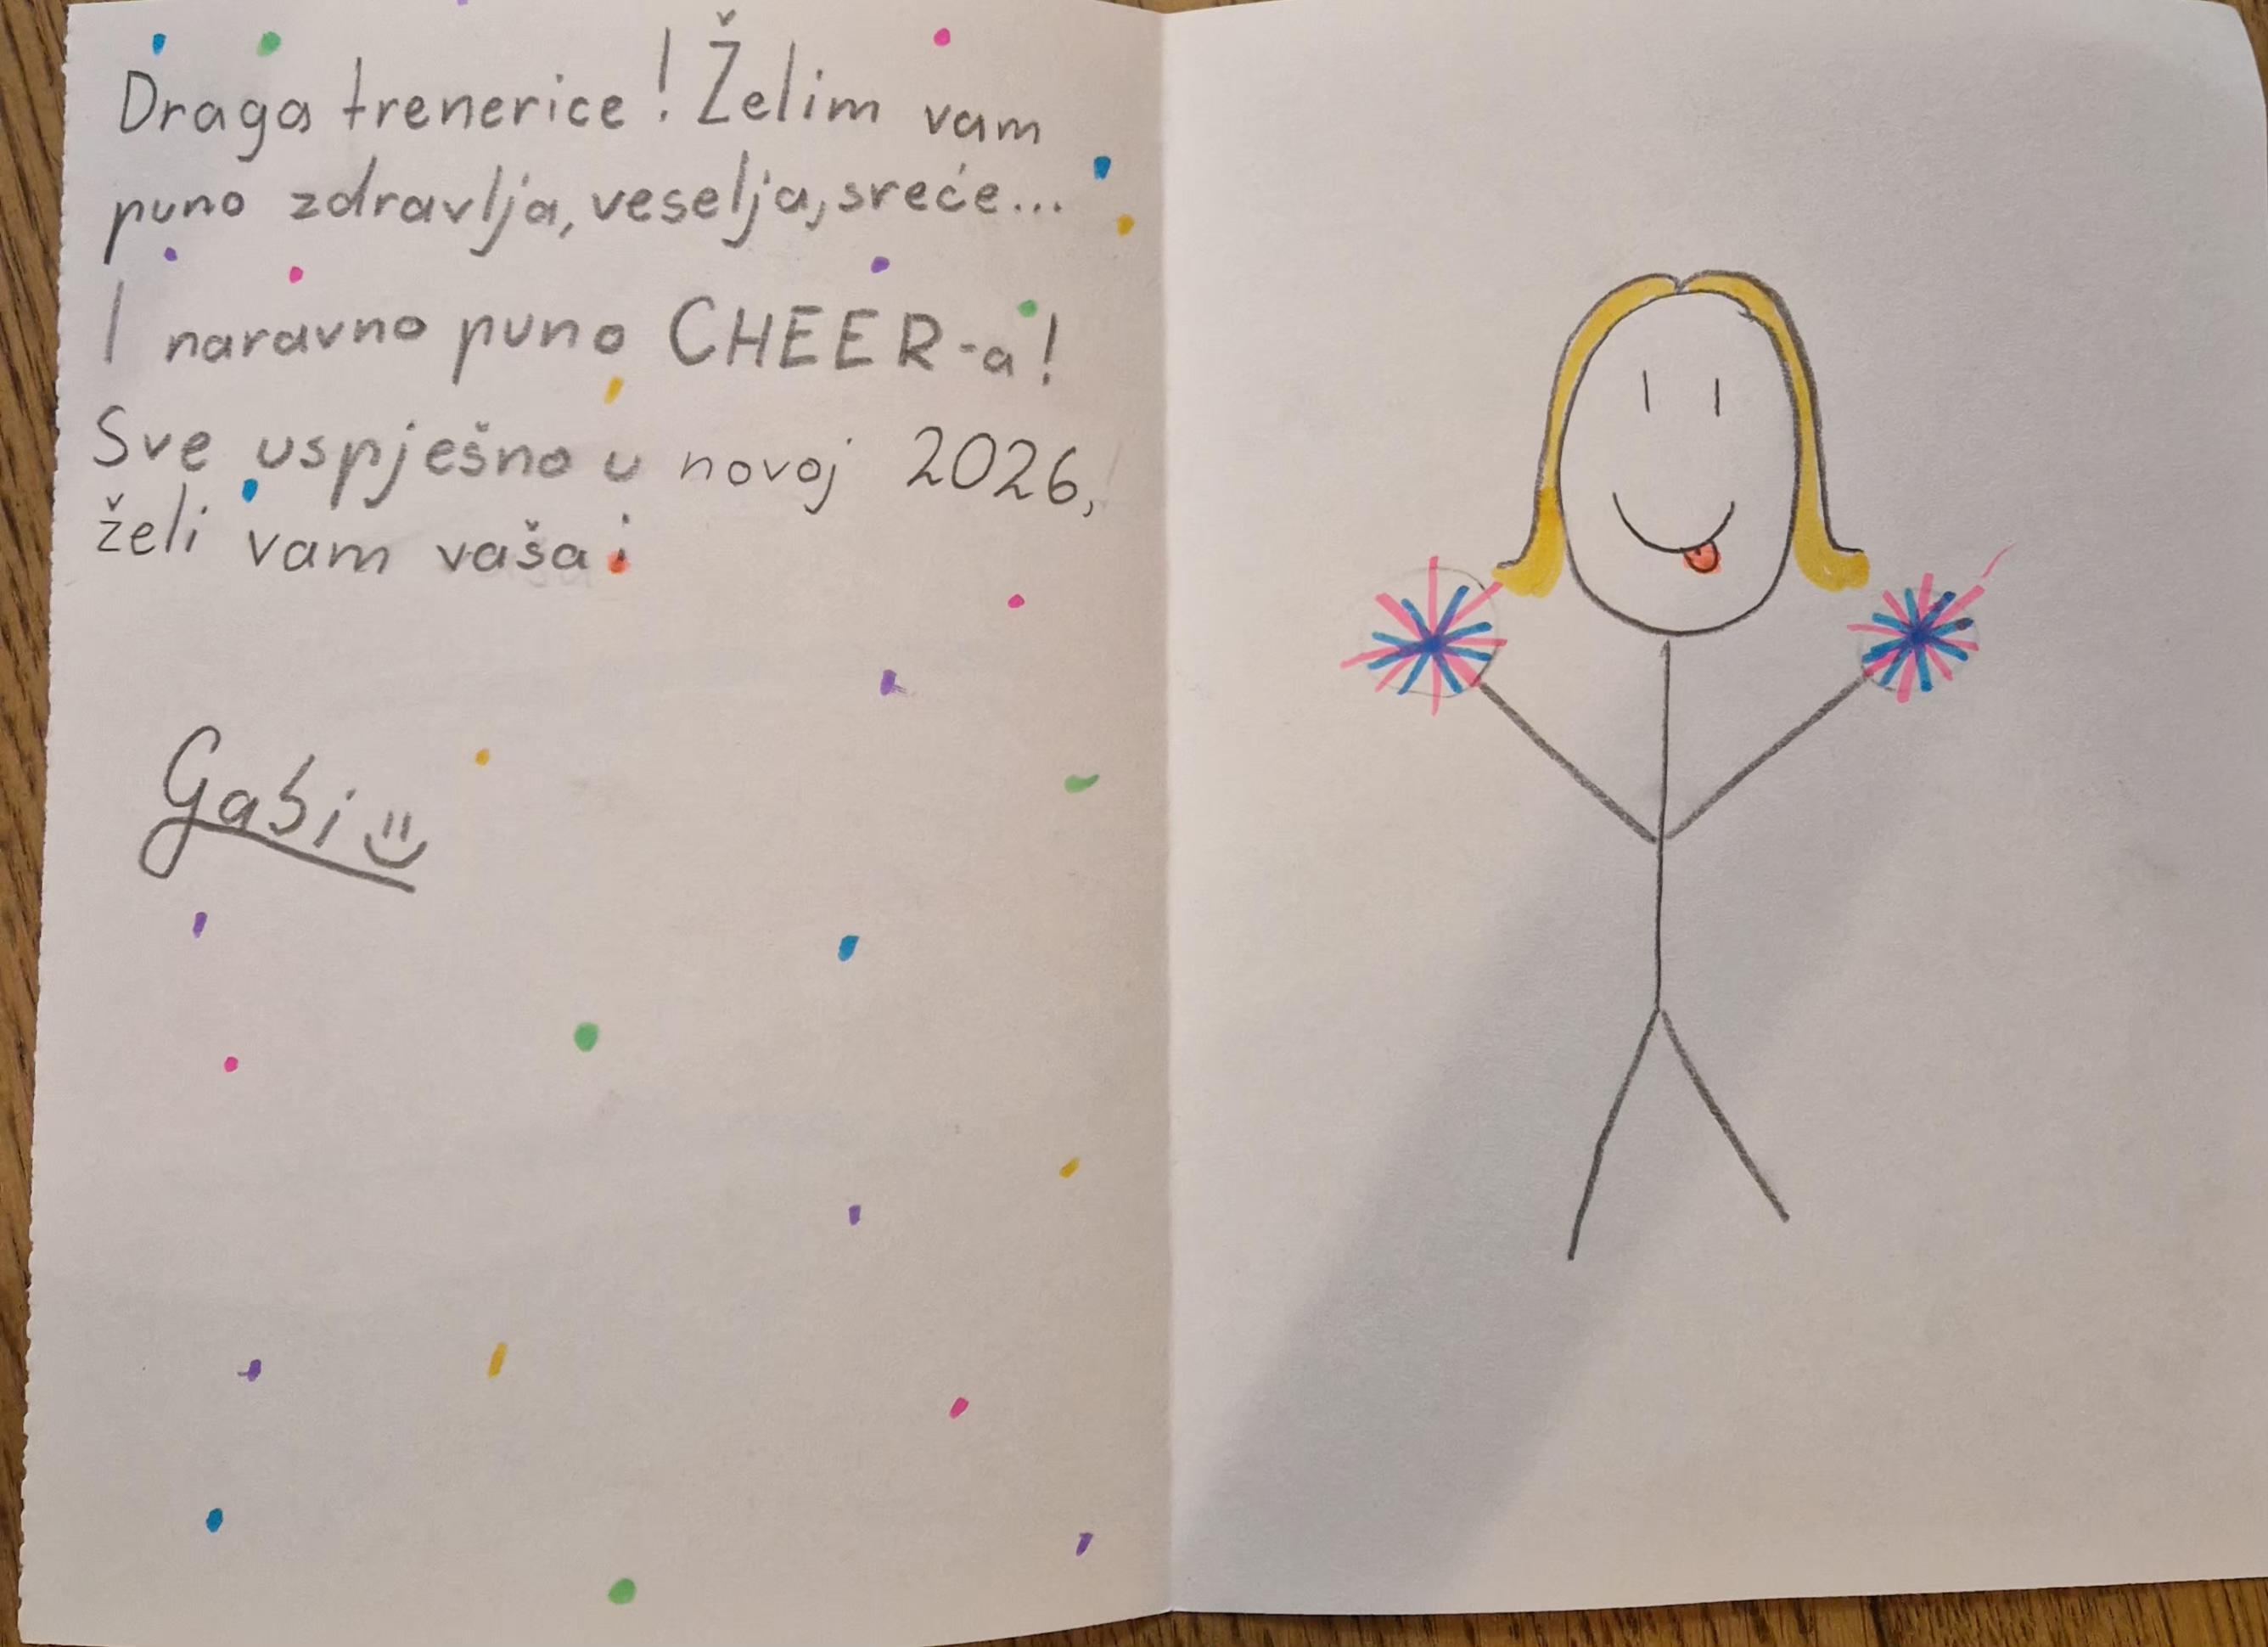 Draga trenerice! Želim vam
puno zdravlja, veselja, sreće...
I naravno puno CHEER-a!
Sve uspješno u novoj 2026,
želi vam vaša:
Gabi